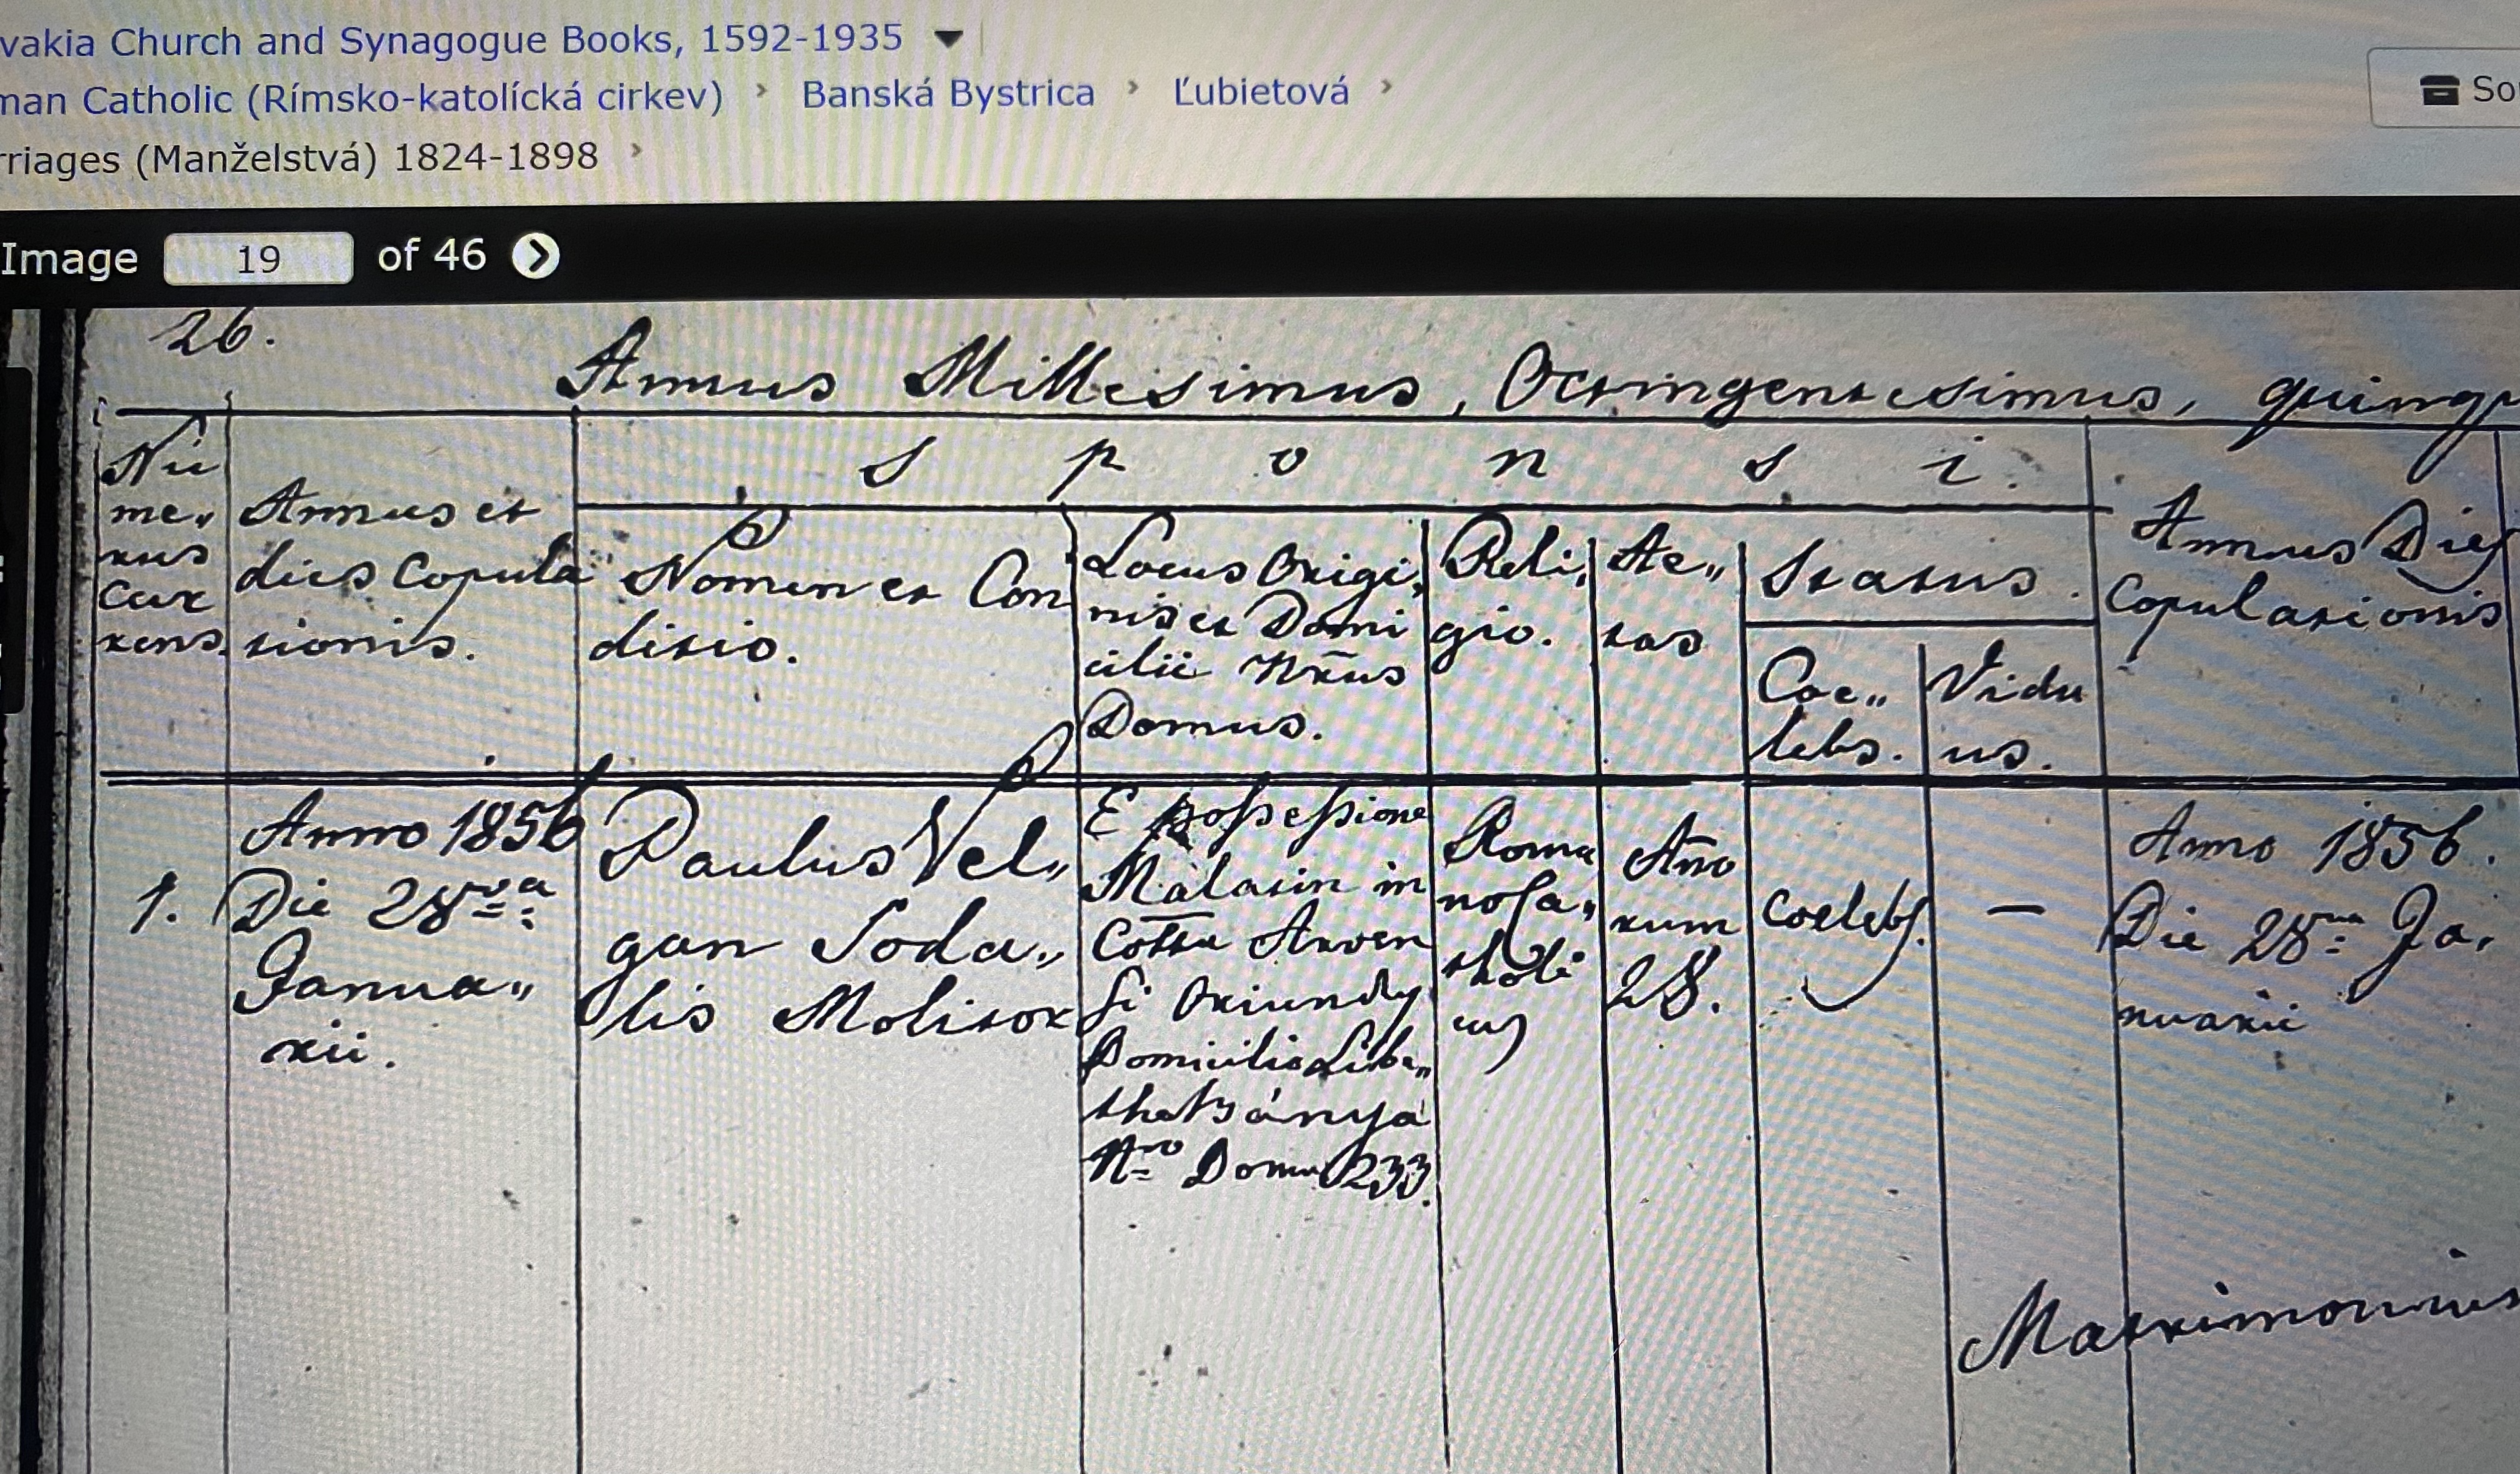 vakia Church and Synagogue Books, 1592-1935
man Catholic (Rímsko-katolícká cirkev) › Banská Bystrica › Ľubietová ›
So
rriages (Manželstvá) 1824-1898 ›
Image 19 of 46
26.
Annus Millesimus, Octingentesimus, quinq
Sponsi.
Nu
me„
rus
Cur
rens.
Annus et
dies Copula
tionis.
Nomen et Con
ditio.
Locus Origi„
nis et Domi
cilii Nrus
Domus.
Reli„
gio.
Ae„
tas
Status.
Coe„
lebs.
Vidu
us.
Annus Dies
Copulationis
1.
Anno 1856
Die 28va
Janua„
rii.
Paulus Vel„
gan Soda„
lis Molitor
E possessione
Malatin in
Cottu Arven
si Oriundus
Domicilio Libe„
thabánya
Nro Domus 233.
Roma
no Ca„
tholi
cus
Anno
rum
28.
Coelebs.
—
Anno 1856.
Die 28va Ja„
nuarii
Matrimonium